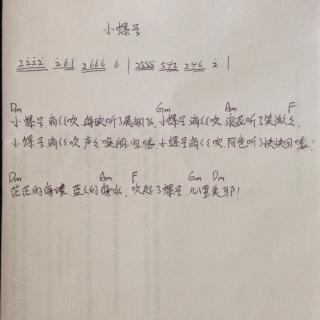 小螺号
2222 261 2666 6 | 2555 542 246 2 |
Dm Gm Am F
小螺号嘀嘀吹 海鸥听了展翅飞 小螺号嘀嘀吹 浪花听了笑微微
小螺号嘀嘀吹 声声唤船归啰 小螺号嘀嘀吹 阿爸听了快快回啰!
Dm Am F Gm Dm
茫茫的海滩 蓝蓝的海水 吹起了螺号 心里美耶!